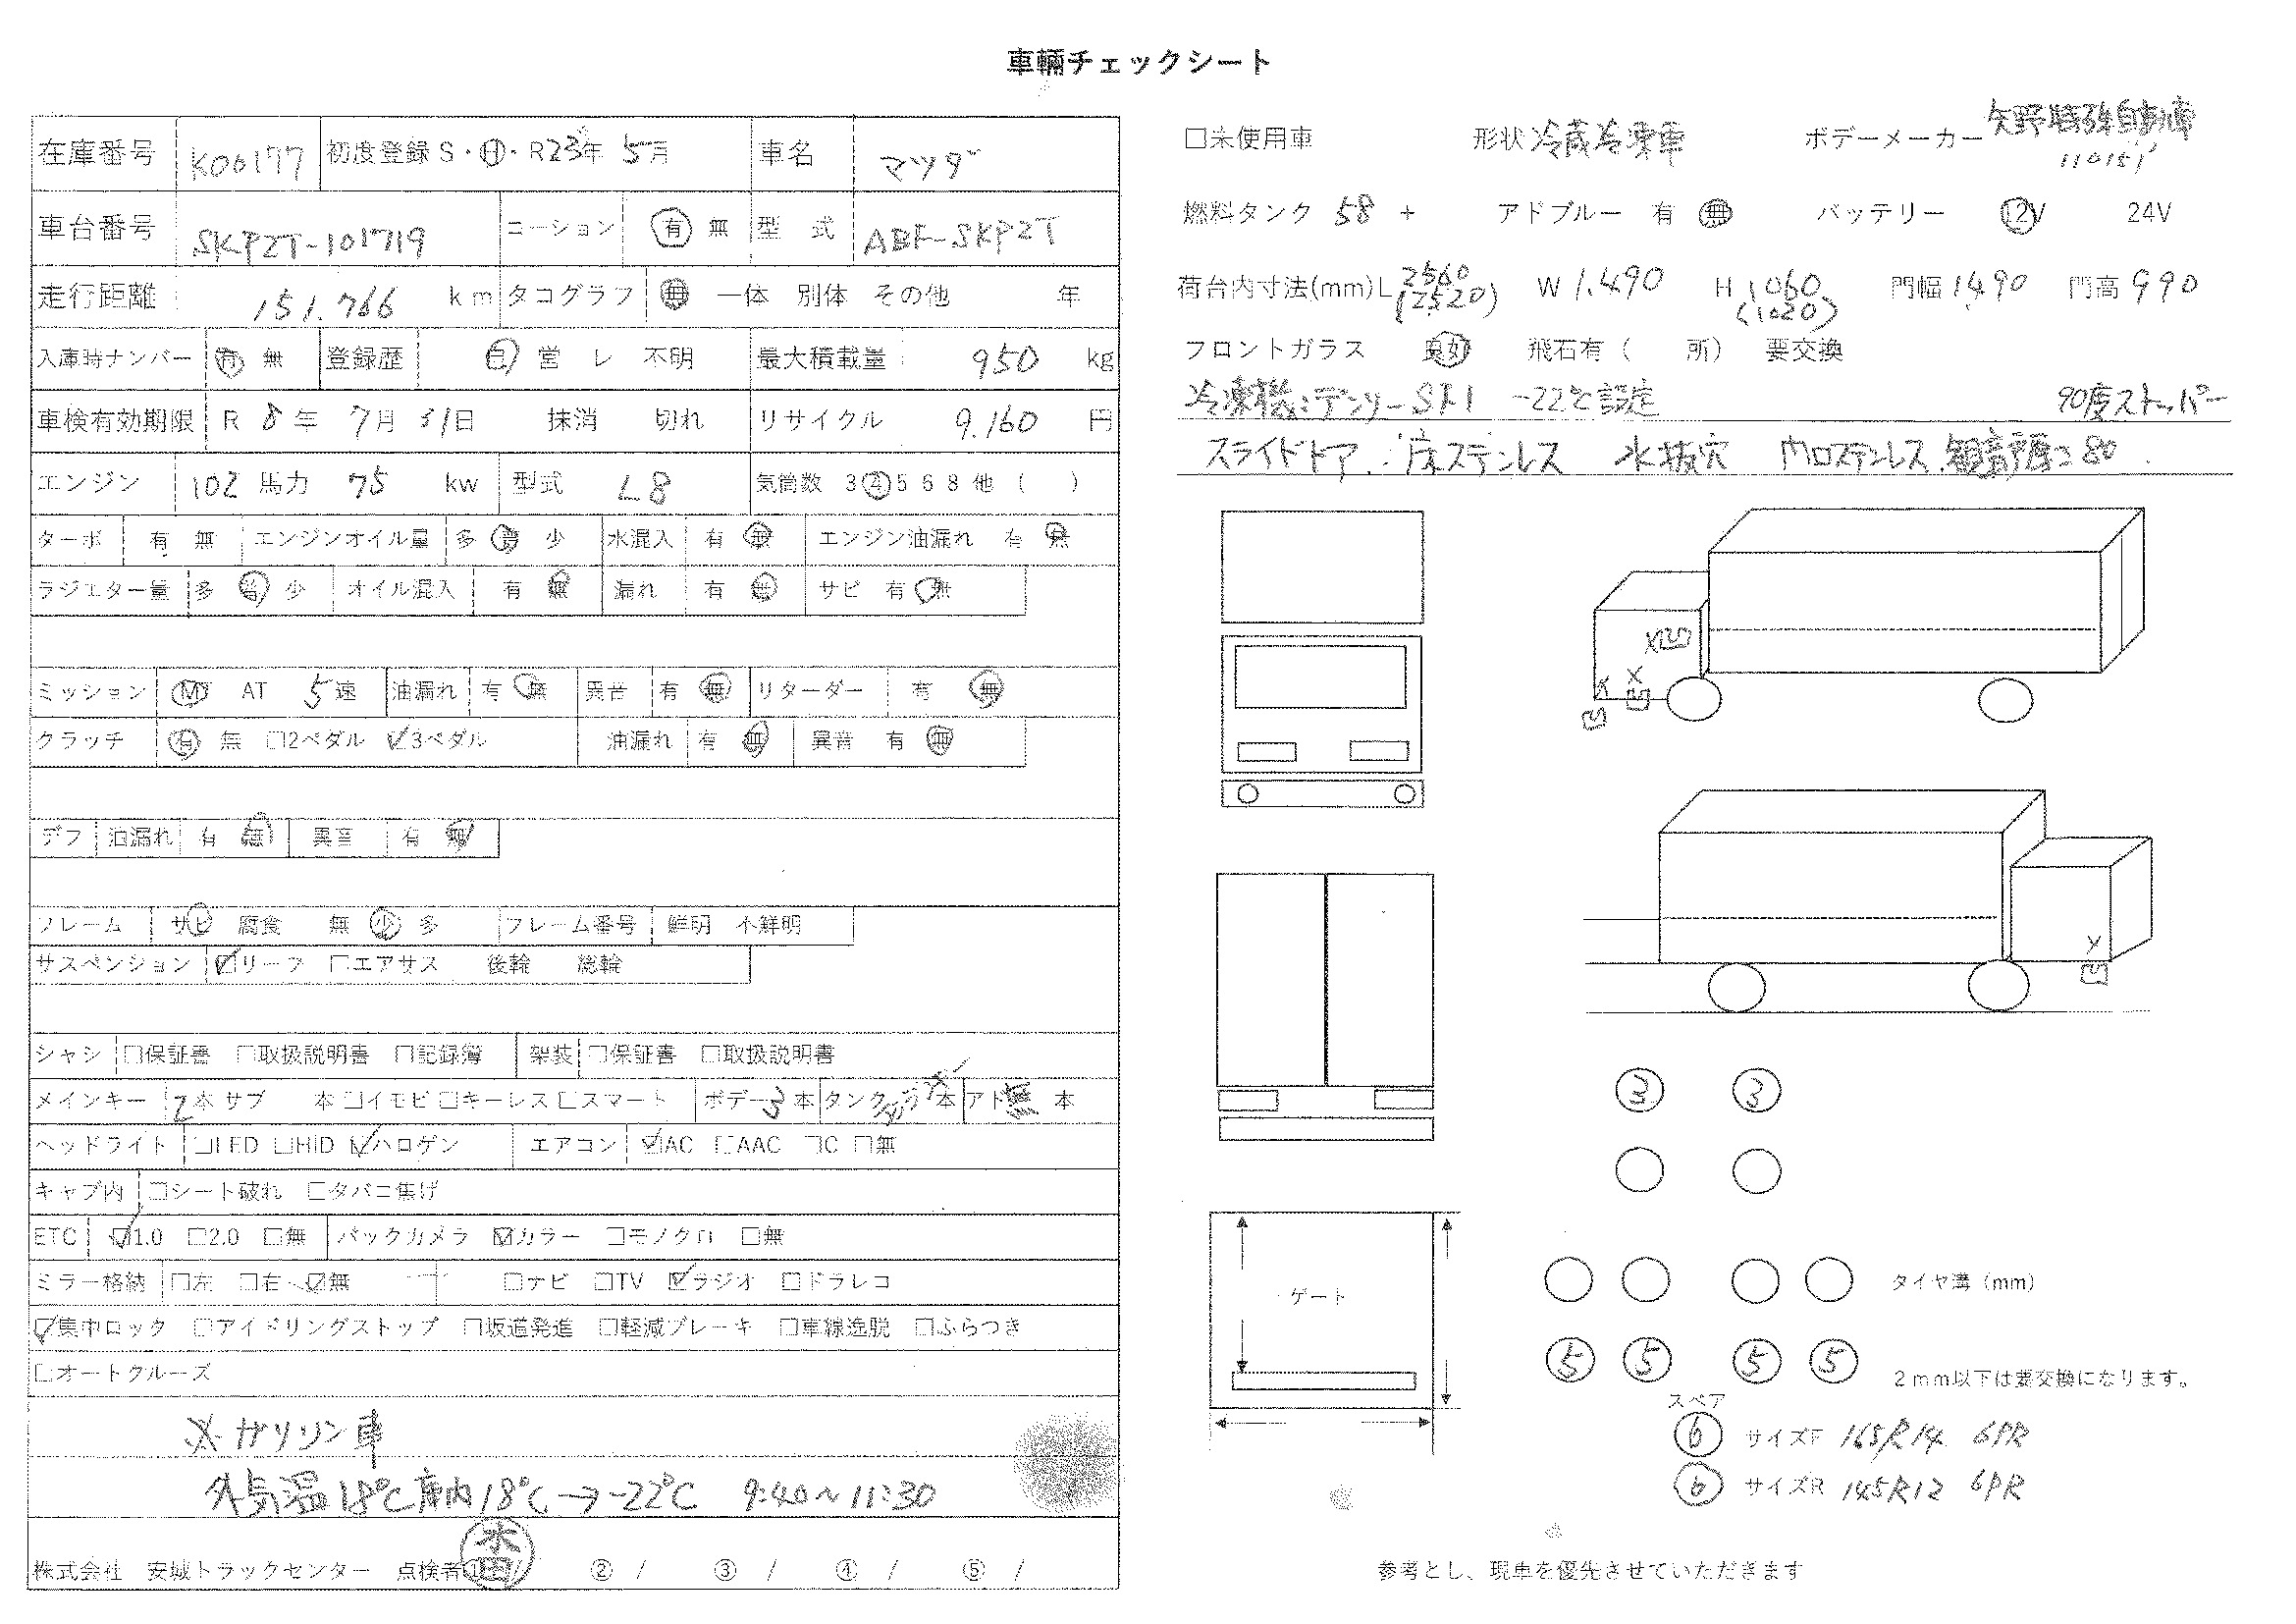 車輛チェックシート
在庫番号 K00177 初度登録 S・H・R23年 5月 車名 マツダ
車台番号 SKP2T-101719 コーション 有 無 型 式 ABF-SKP2T
走行距離 151.766 km タコグラフ 無 一体 別体 その他 年
入庫時ナンバー 有 無 登録歴 自 営 レ 不明 最大積載量 950 kg
車検有効期限 R 8年 7月 31日 抹消 切れ リサイクル 9.160 円
エンジン 102 馬力 75 kw 型式 L8 気筒数 3 4 5 6 8 他 ( )
ターボ 有 無 エンジンオイル量 多 普 少 水混入 有 無 エンジン油漏れ 有 無
ラジエター量 多 普 少 オイル混入 有 無 漏れ 有 無 サビ 有 無
ミッション MT AT 5速 油漏れ 有 無 異音 有 無 リターダー 有 無
クラッチ 有 無 □2ペダル ☑3ペダル 油漏れ 有 無 異音 有 無
デフ 油漏れ 有 無 異音 有 無
フレーム サビ 腐食 無 少 多 フレーム番号 鮮明 不鮮明
サスペンション ☑リーフ □エアサス 後輪 総輪
シャシ □保証書 □取扱説明書 □記録簿 架装 □保証書 □取扱説明書
メインキー 2本 サブ 本 □イモビ □キーレス □スマート ボデー 3本 タンク 本 アド 無 本
ヘッドライト □LED □HID ☑ハロゲン エアコン ☑AC □AAC □C □無
キャブ内 □シート破れ □タバコ焦げ
ETC ☑1.0 □2.0 □無 バックカメラ ☑カラー □モノクロ □無
ミラー格納 □左 □右 ☑無 □ナビ □TV ☑ラジオ □ドラレコ
☑集中ロック □アイドリングストップ □坂道発進 □軽減ブレーキ □車線逸脱 □ふらつき
□オートクルーズ
※ガソリン車
外気温18℃庫内18℃→-22℃ 9:40~11:30
株式会社 安城トラックセンター 点検者① / ② / ③ / ④ / ⑤ /
水田
□未使用車 形状 冷蔵冷凍車 ボデーメーカー 矢野特殊自動車
110151
燃料タンク 58 + アドブルー 有 無 バッテリー 12V 24V
荷台内寸法(mm)L 2560 W 1.490 H 1060 門幅 1490 門高 990
(2520) (1020)
フロントガラス 良好 飛石有 ( 所) 要交換
冷凍機:デンソー -22℃設定 90度ストッパー
スライドドア 床ステンレス 水抜穴 内ロステンレス 観音扉厚:80
3 3
ゲート
タイヤ溝 (mm)
5 5 5 5
2mm以下は要交換になります。
スペア
6 サイズF 165R14 6PR
6 サイズR 145R12 6PR
参考とし、現車を優先させていただきます